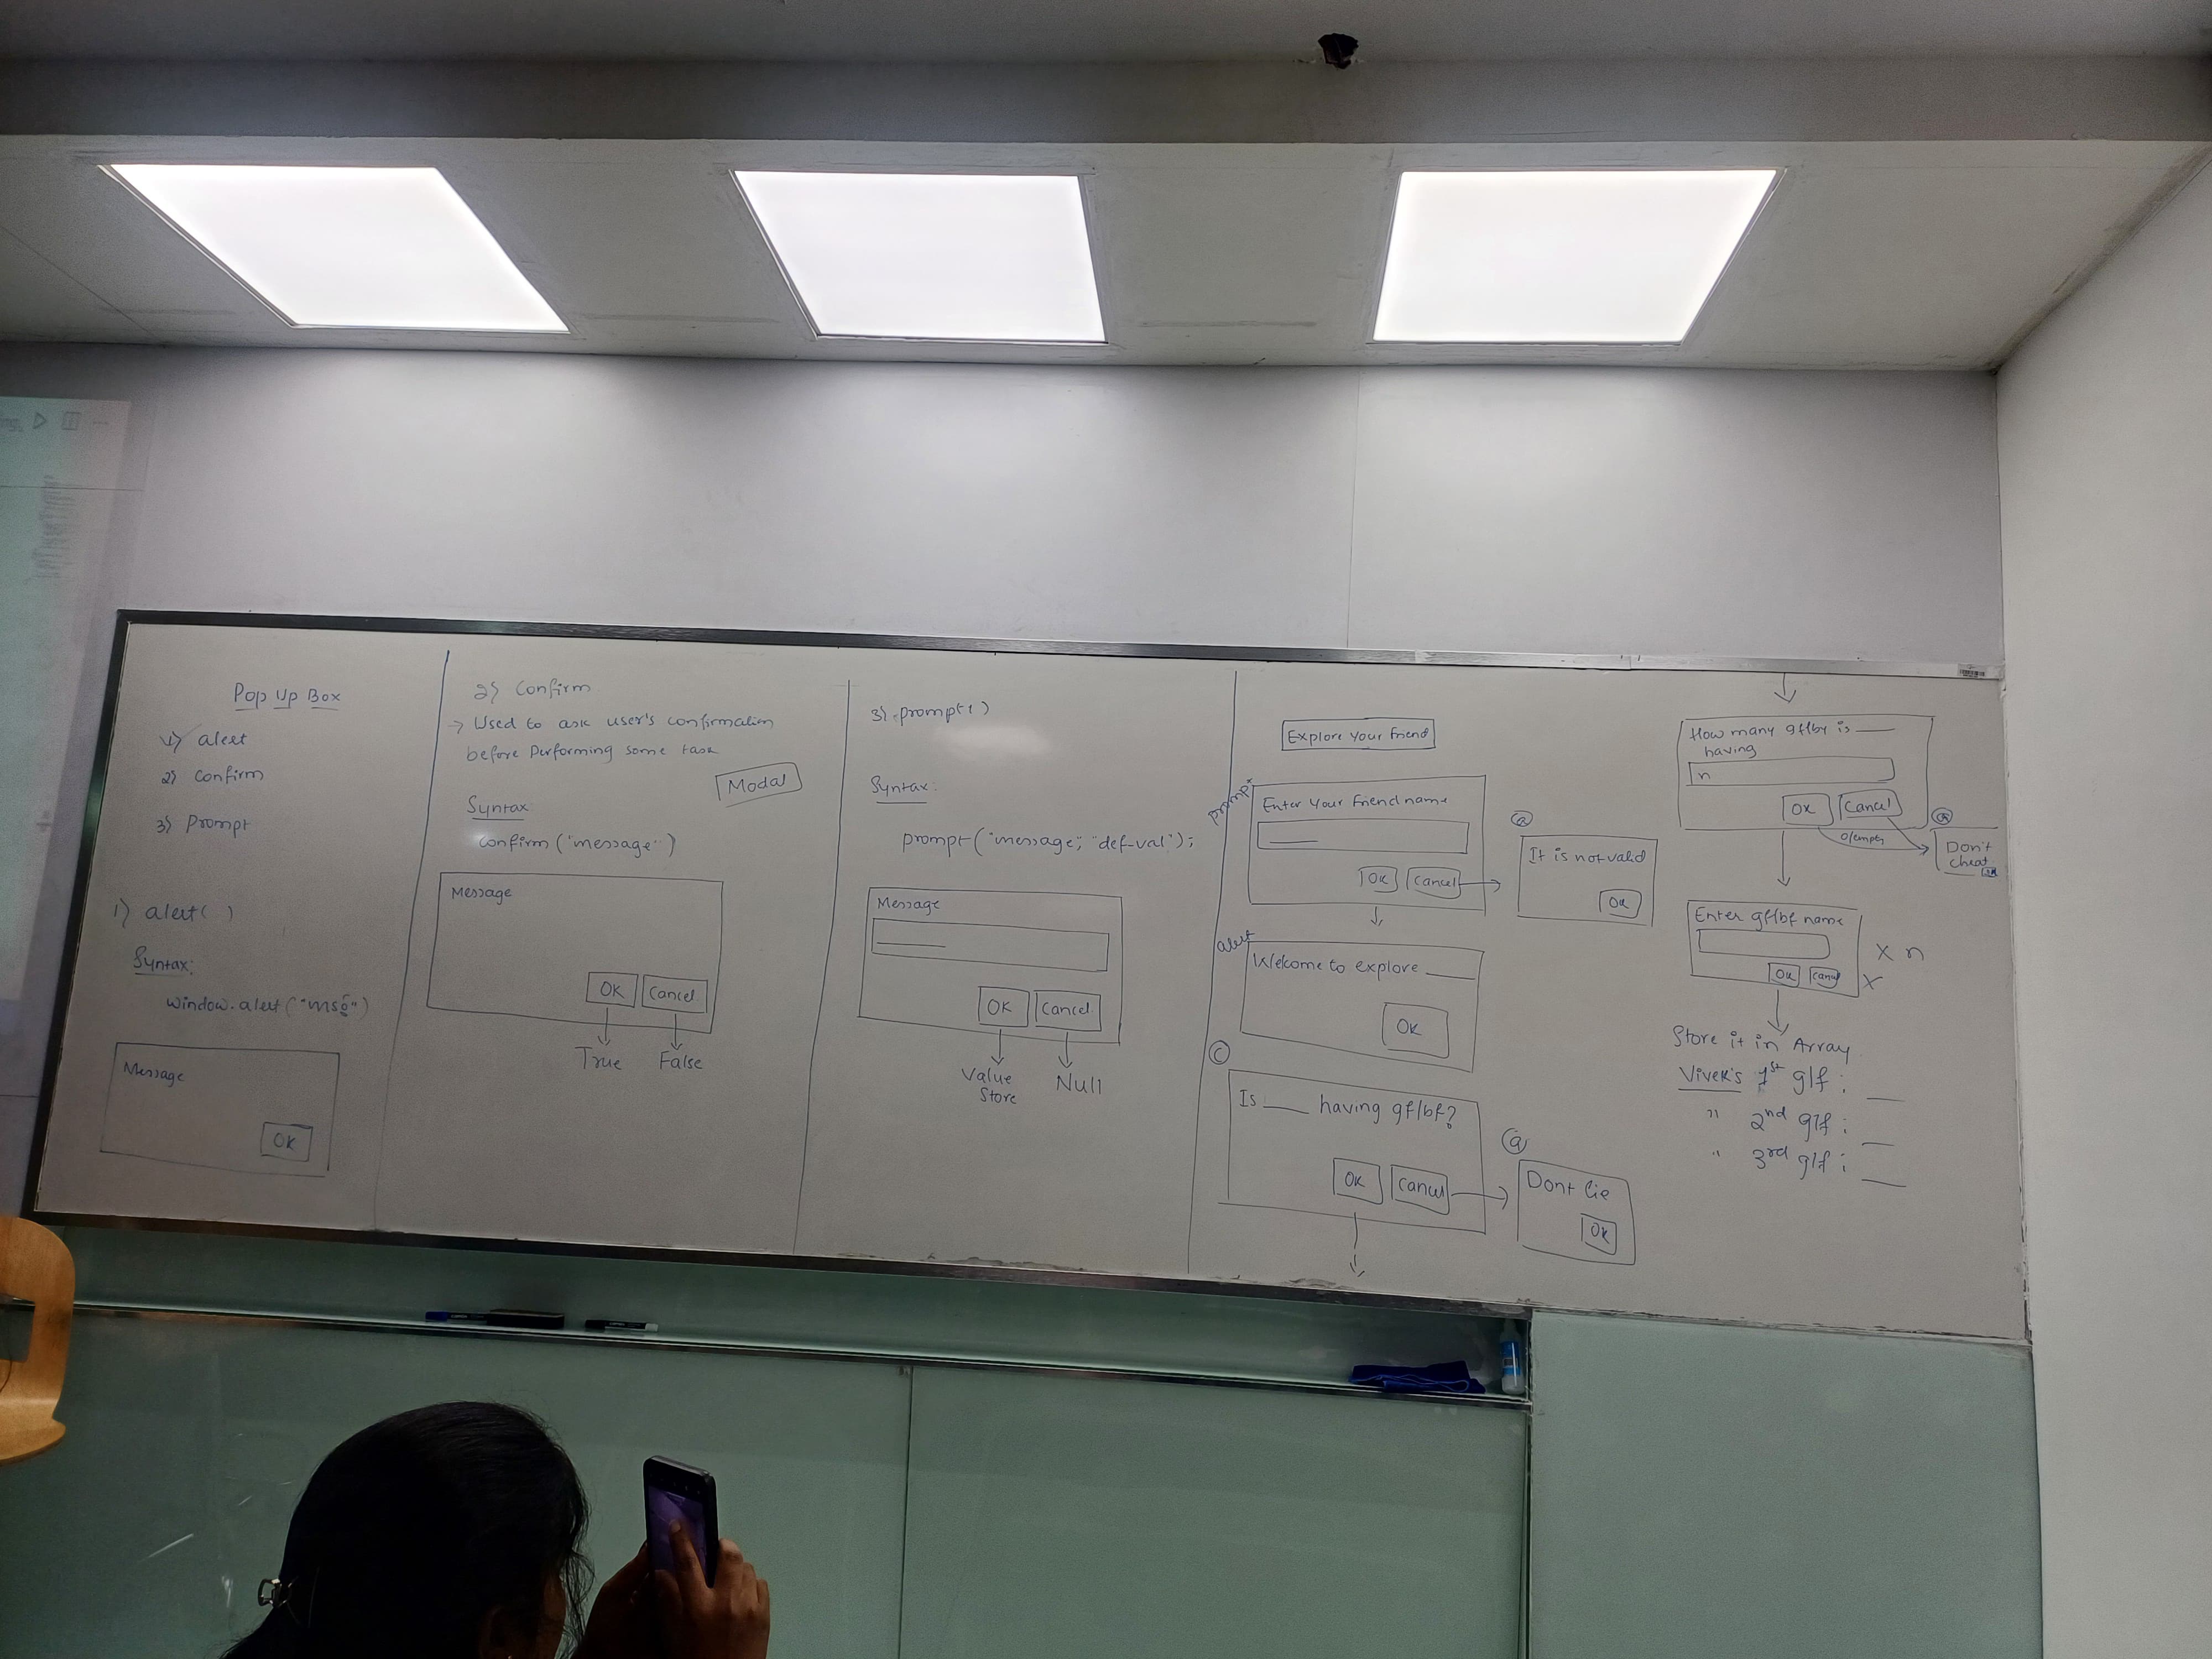 Pop Up Box
1) alert
2) Confirm
3) Prompt
1) alert( )
Syntax:
window.alert("msg")
Message
OK
2) Confirm
→ Used to ask user's confirmation
before Performing some task
Modal
Syntax
confirm ("message")
Message
OK Cancel
True False
3) prompt()
Syntax:
prompt("message", "def-val");
Message
OK Cancel
Value Store
Null
Explore Your Friend
prompt
Enter Your Friend name
OK Cancel
a
It is not valid
OK
alert
Welcome to explore ____
OK
C
Is ____ having gf/bf?
OK Cancel
a
Dont lie
OK
How many gf/bf is ____
having
n
OK Cancel
a
0/empty
Don't
cheat
OK
Enter gf/bf name
OK Cancel
X n
X
Store it in Array
Vivek's 1st g/f : ____
" 2nd g/f : ____
" 3rd g/f : ____